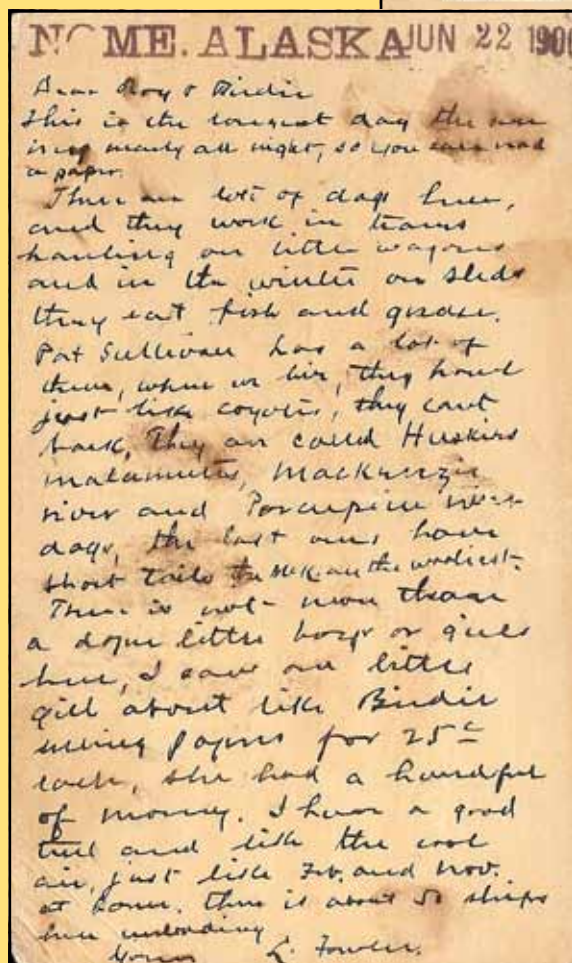 NOME. ALASKA JUN 22 1900
Dear Roy & Birdie
This is the longest day the sun
is up nearly all night, so you can read
a paper.
There are lots of dogs here,
and they work in teams
hauling on little wagons
and in the winter on sleds
they eat fish and grease.
Pat Sullivan has a lot of
them, where we live, they howl
just like coyotes, they cant
bark, They are called Huskies
malamutes, Mackenzie
river and Porcupine river
dogs, the last ones have
short tails the are the wooliest.
There is not more than
a dozen little boys or girls
here, I saw one little
girl about like Birdie
selling papers for 25c
each, she had a handful
of money. I have a good
tent and like the cool
air, just like Feb. and Nov.
at home. there is about 50 ships
here unloading
Yours L. Fowler.